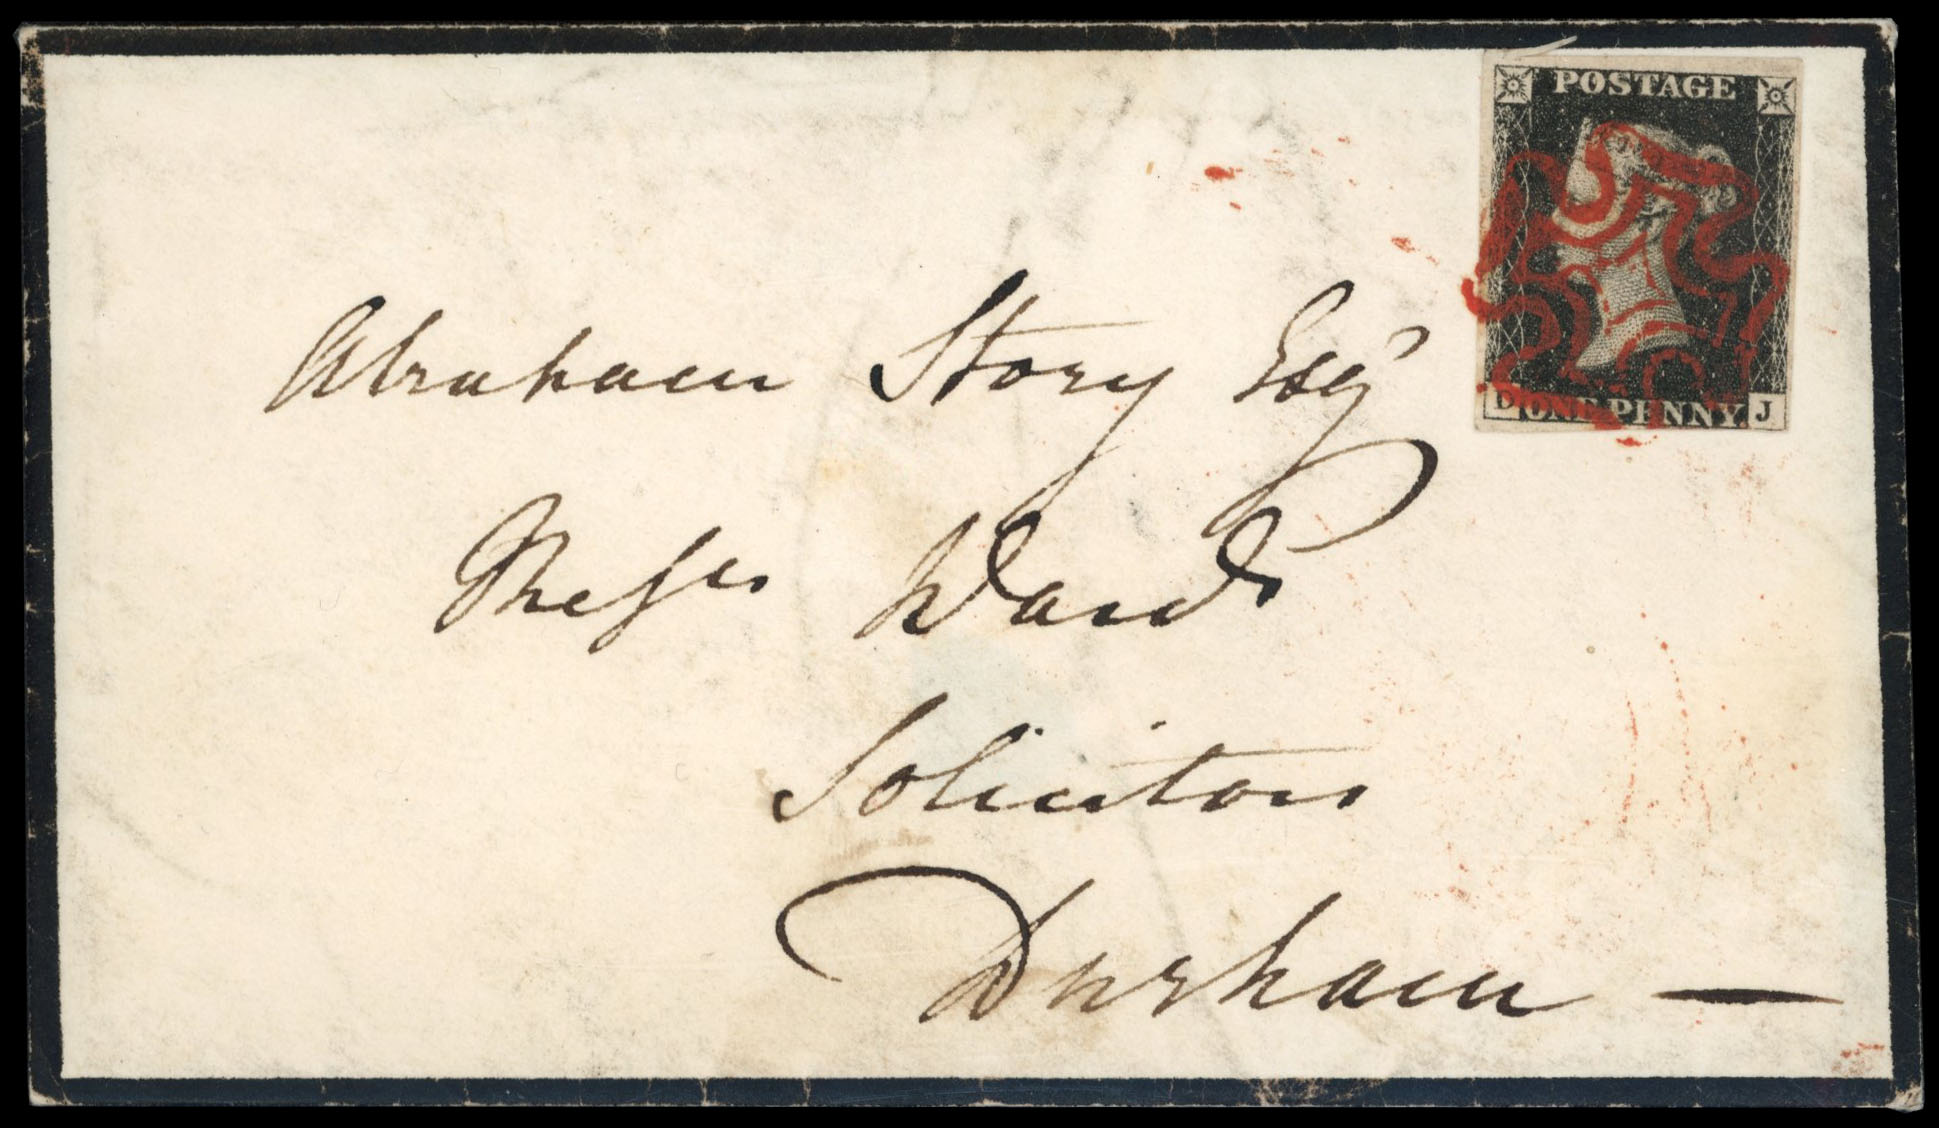 POSTAGE
D ONE PENNY. J
Abraham Story Esqr
Messrs Wards
Solicitors
Durham —